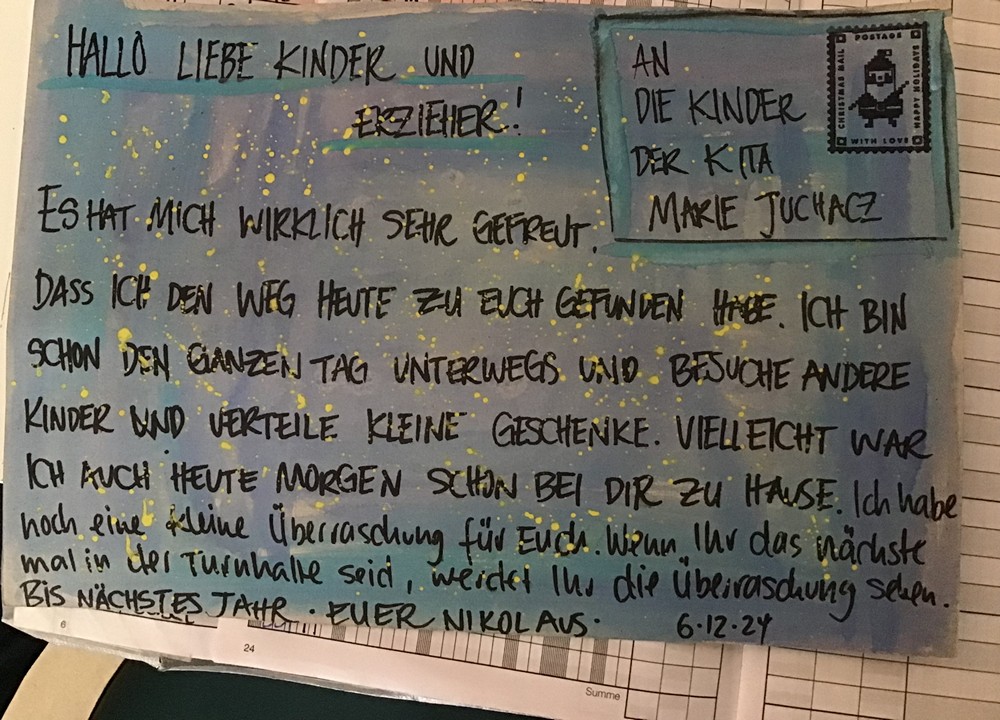 HALLO LIEBE KINDER UND
ERZIEHER!
AN
DIE KINDER
DER KITA
MARIE JUCHACZ
POSTAGE
CHRISTMAS MAIL
HAPPY HOLIDAYS
WITH LOVE
ES HAT MICH WIRKLICH SEHR GEFREUT,
DASS ICH DEN WEG HEUTE ZU EUCH GEFUNDEN HABE. ICH BIN
SCHON DEN GANZEN TAG UNTERWEGS UND BESUCHE ANDERE
KINDER UND VERTEILE KLEINE GESCHENKE. VIELLEICHT WAR
ICH AUCH HEUTE MORGEN SCHON BEI DIR ZU HAUSE. Ich habe
noch eine kleine Überraschung für Euch. Wenn Ihr das nächste
mal in der Turnhalle seid, werdet Ihr die Überraschung sehen.
BIS NÄCHSTES JAHR. EUER NIKOLAUS.
6.12.24
6
24
Summe